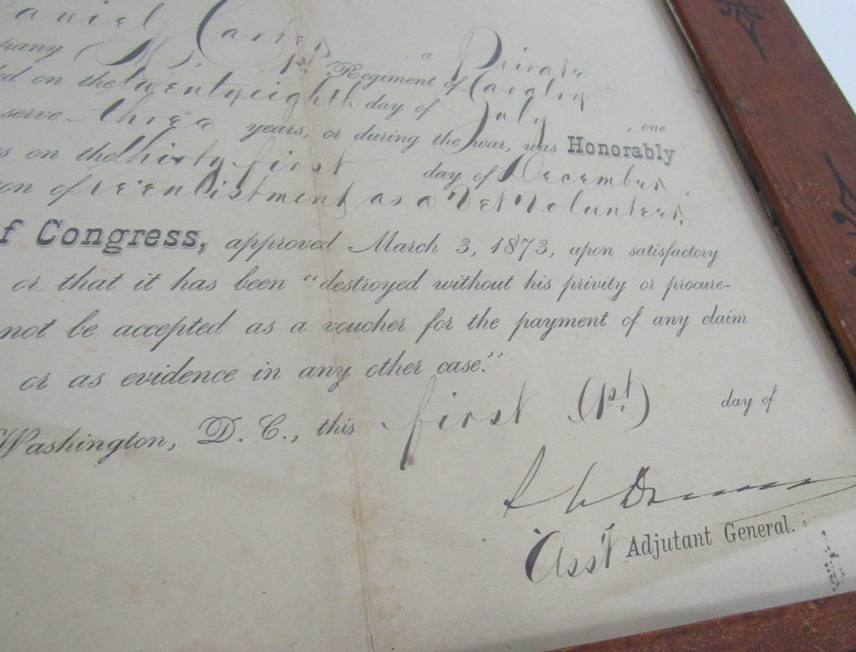 aniel Carter
pany M, 1st Regiment of Cavalry " Private
ed on the twentyeighth day of July
serve three years, or during the war, was Honorably , one
s on the thirty first day of December,
on of reenlistment as a Vet Volunteer.
f Congress, approved March 3, 1873, upon satisfactory
or that it has been “destroyed without his privity or procure-
not be accepted as a voucher for the payment of any claim
or as evidence in any other case.”
Washington, D. C., this first (1st) day of
Ass't Adjutant General.